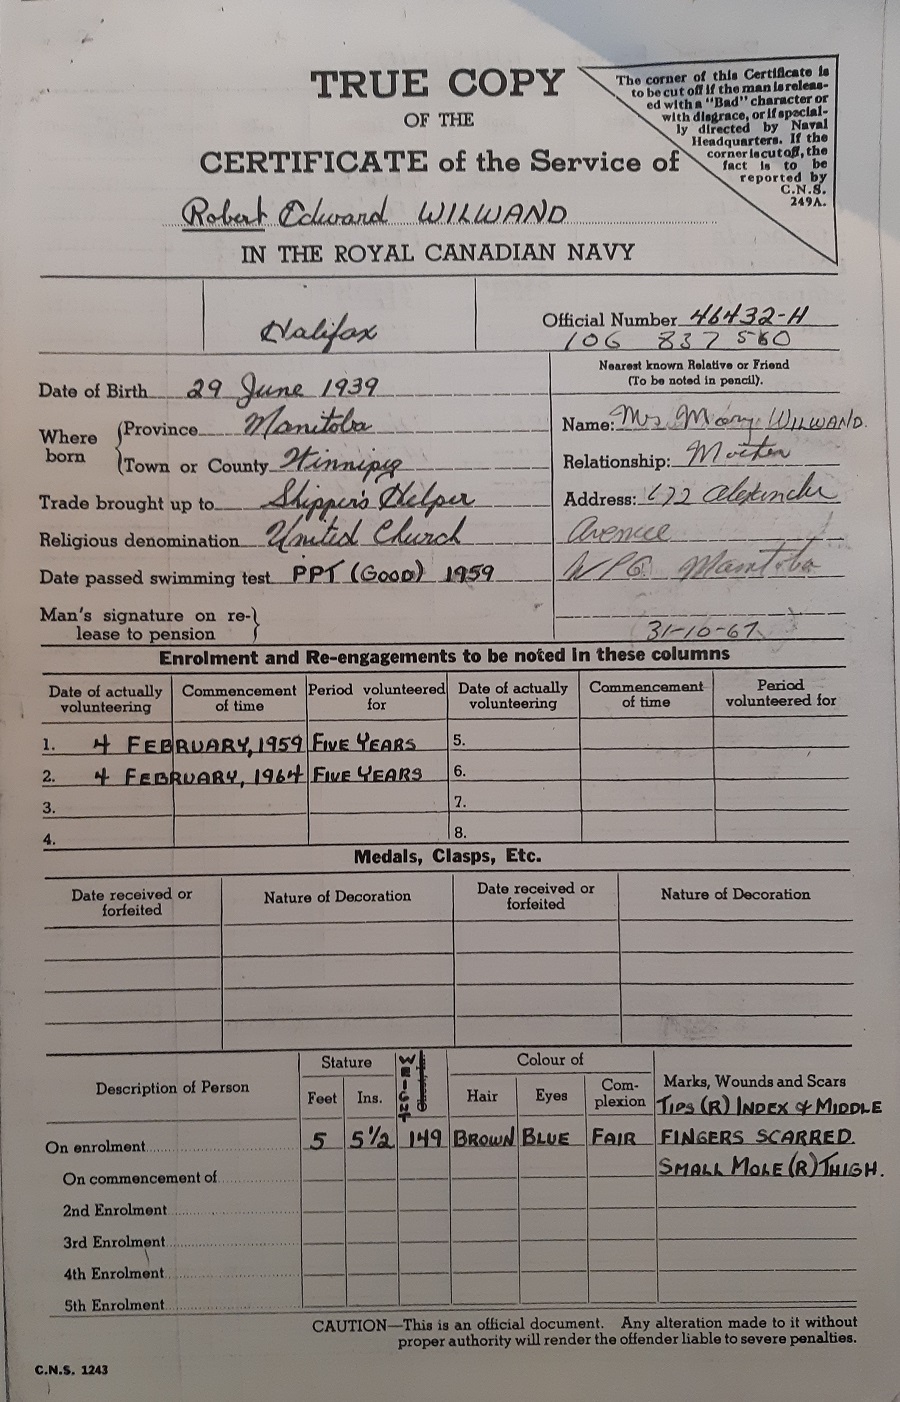 TRUE COPY
OF THE
CERTIFICATE of the Service of
Robert Edward WILWAND
IN THE ROYAL CANADIAN NAVY
The corner of this Certificate is
to be cut off if the man is releas-
ed with a "Bad" character or
with disgrace, or if special-
ly directed by Naval
Headquarters. If the
corner is cut off, the
fact is to be
reported by
C.N.S.
249A.
Halifax
Official Number 46432-H
106 837 560
Date of Birth 29 June 1939
Where born
Province Manitoba
Town or County Winnipeg
Trade brought up to Shipper's Helper
Religious denomination United Church
Date passed swimming test PPT (GOOD) 1959
Man's signature on re-
lease to pension
Nearest known Relative or Friend
(To be noted in pencil).
Name: Mrs Mary WILWAND.
Relationship: Mother
Address: 672 Alexander
Avenue
WPG Manitoba
31-10-67
Enrolment and Re-engagements to be noted in these columns
Date of actually volunteering Commencement of time Period volunteered for Date of actually volunteering Commencement of time Period volunteered for
1. 4 FEBRUARY, 1959 FIVE YEARS 5.
2. 4 FEBRUARY, 1964 FIVE YEARS 6.
3. 7.
4. 8.
Medals, Clasps, Etc.
Date received or forfeited Nature of Decoration Date received or forfeited Nature of Decoration
Description of Person
Stature
Feet Ins.
WEIGHT
Colour of
Hair Eyes Com-plexion
Marks, Wounds and Scars
On enrolment 5 5 1/2 149 BROWN BLUE FAIR
TIPS (R) INDEX & MIDDLE
FINGERS SCARRED.
SMALL MOLE (R) THIGH.
On commencement of
2nd Enrolment
3rd Enrolment
4th Enrolment
5th Enrolment
CAUTION—This is an official document. Any alteration made to it without
proper authority will render the offender liable to severe penalties.
C.N.S. 1243